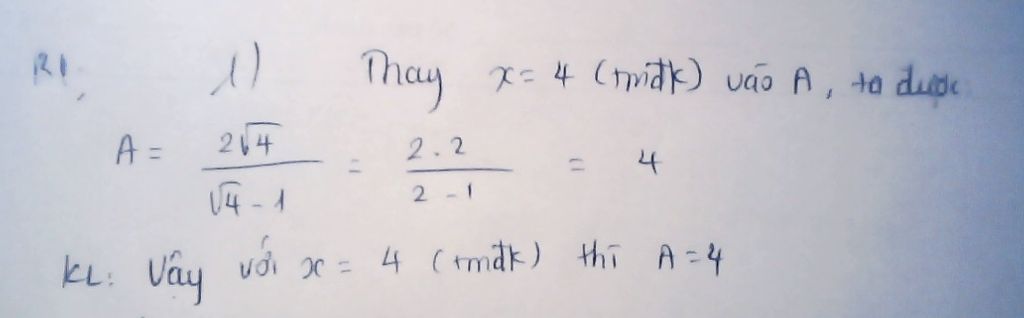 B1, 1) Thay x = 4 (tmđk) vào A, ta được
A = 2√4 / (√4 - 1) = 2.2 / (2 - 1) = 4
KL: Vậy với x = 4 (tmđk) thì A = 4